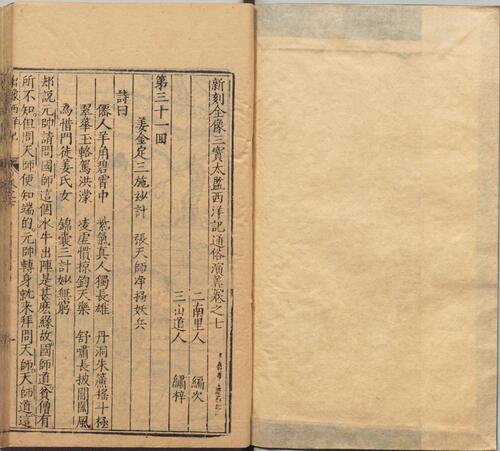 新刻全像三寶太監西洋記通俗演義卷之七
二南里人 編次
三山道人 繡梓
第三十一回
姜金定三施妙計 張天師淨掃妖兵
詩曰
僊人羊角碧霄中 紫氣真人獨長雄 丹洞朱簾搖斗極
翠華玉輅駕洪濛 凌虛慣掠鈞天樂 舒嘯長披閶闔風
為惜門徒姜氏女 錦囊三計妙無窮
却說元帥請問國師這個水牛出陣是甚麽緣故國師道貧僧有
所不知但問天師便知端的元帥轉身就来拜問天師天師道這